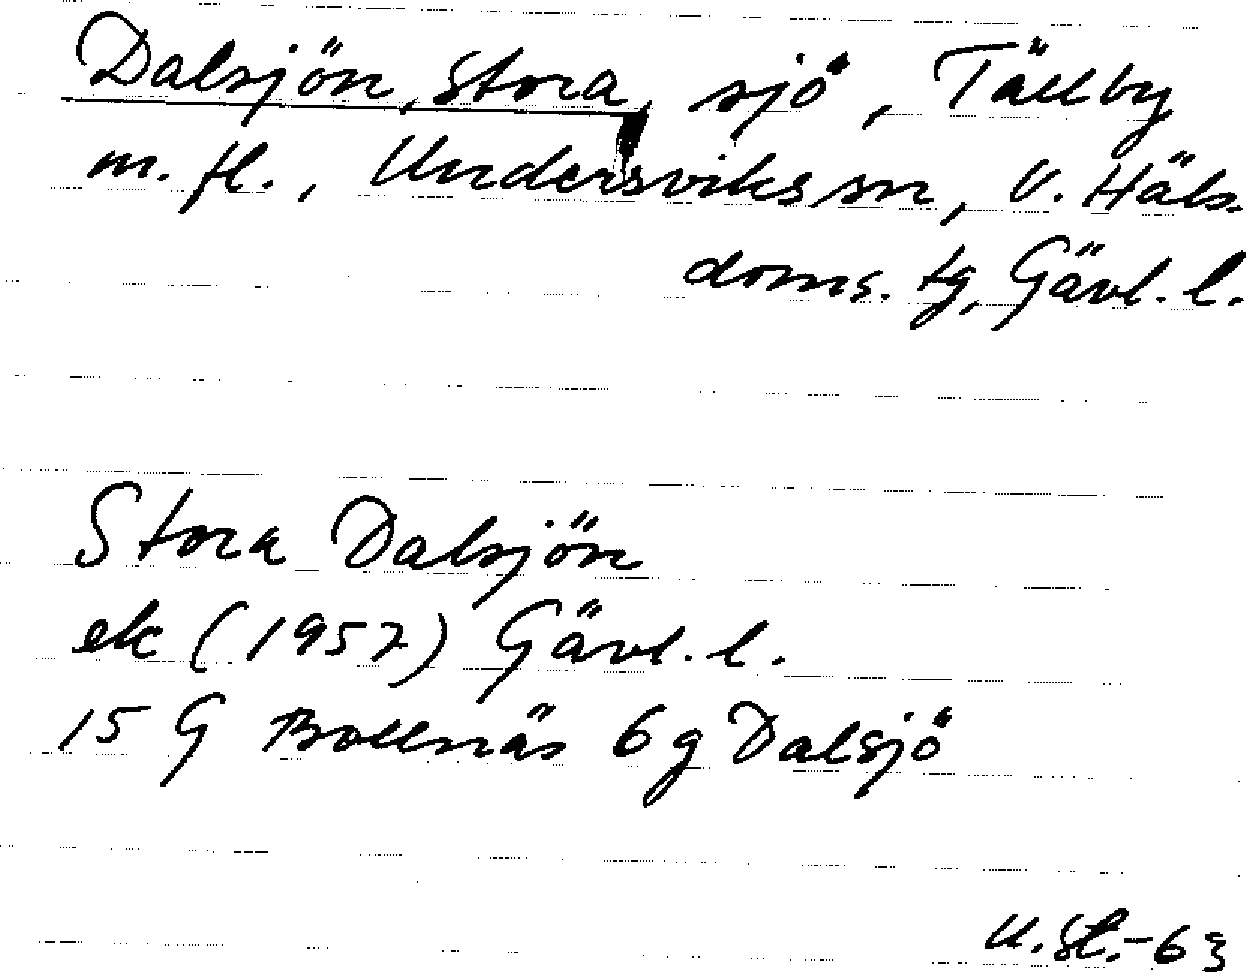 Dalsjön, Stora, sjö, Tällby
m. fl., Undersviks sn, V. Häls.
doms. tg, Gävl. l.
Stora Dalsjön
ek (1957) Gävl. l.
15 G Bollnäs 6 g Dalsjö
U. St. -63